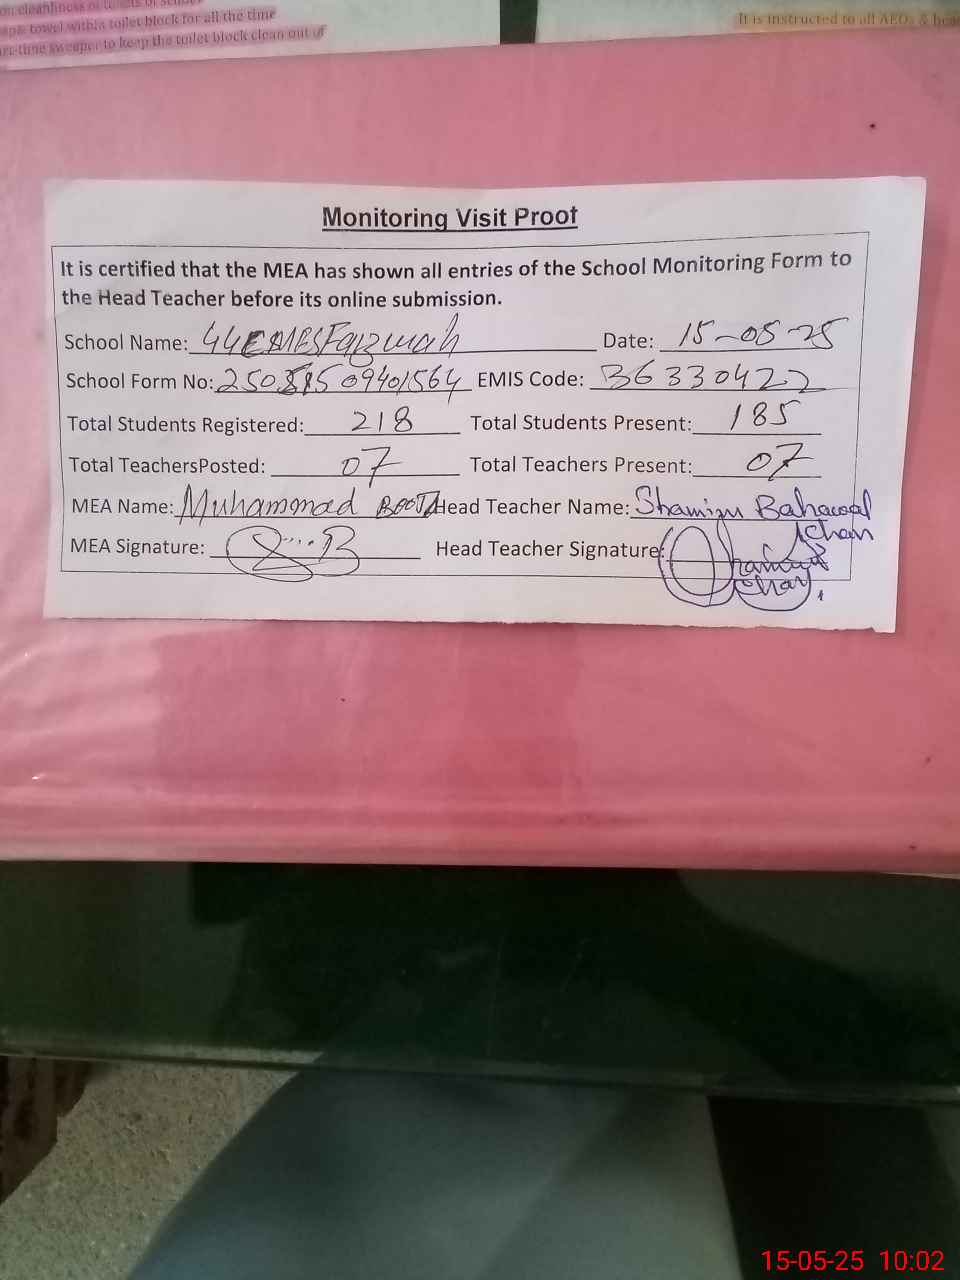 on cleanliness of toilets of school
towel within toilet block for all the time
sweeper to keep the toilet block clean out of
It is instructed to all AEOs &
Monitoring Visit Proof
It is certified that the MEA has shown all entries of the School Monitoring Form to
the Head Teacher before its online submission.
School Name: Date: 15-05-25
School Form No: EMIS Code: 36330422
Total Students Registered: 218 Total Students Present: 185
Total TeachersPosted: 07 Total Teachers Present: 07
MEA Name: Muhammad BOOTA Head Teacher Name: Shamim Bahawal
Khan
MEA Signature: Head Teacher Signature:
15-05-25 10:02